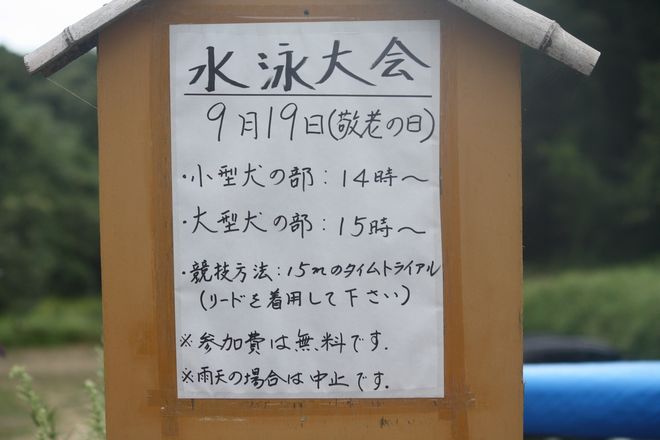 水泳大会
9月19日(敬老の日)
・小型犬の部：14時～
・大型犬の部：15時～
・競技方法：15mのタイムトライアル
(リードを着用して下さい)
※参加費は無料です.
※雨天の場合は中止です.